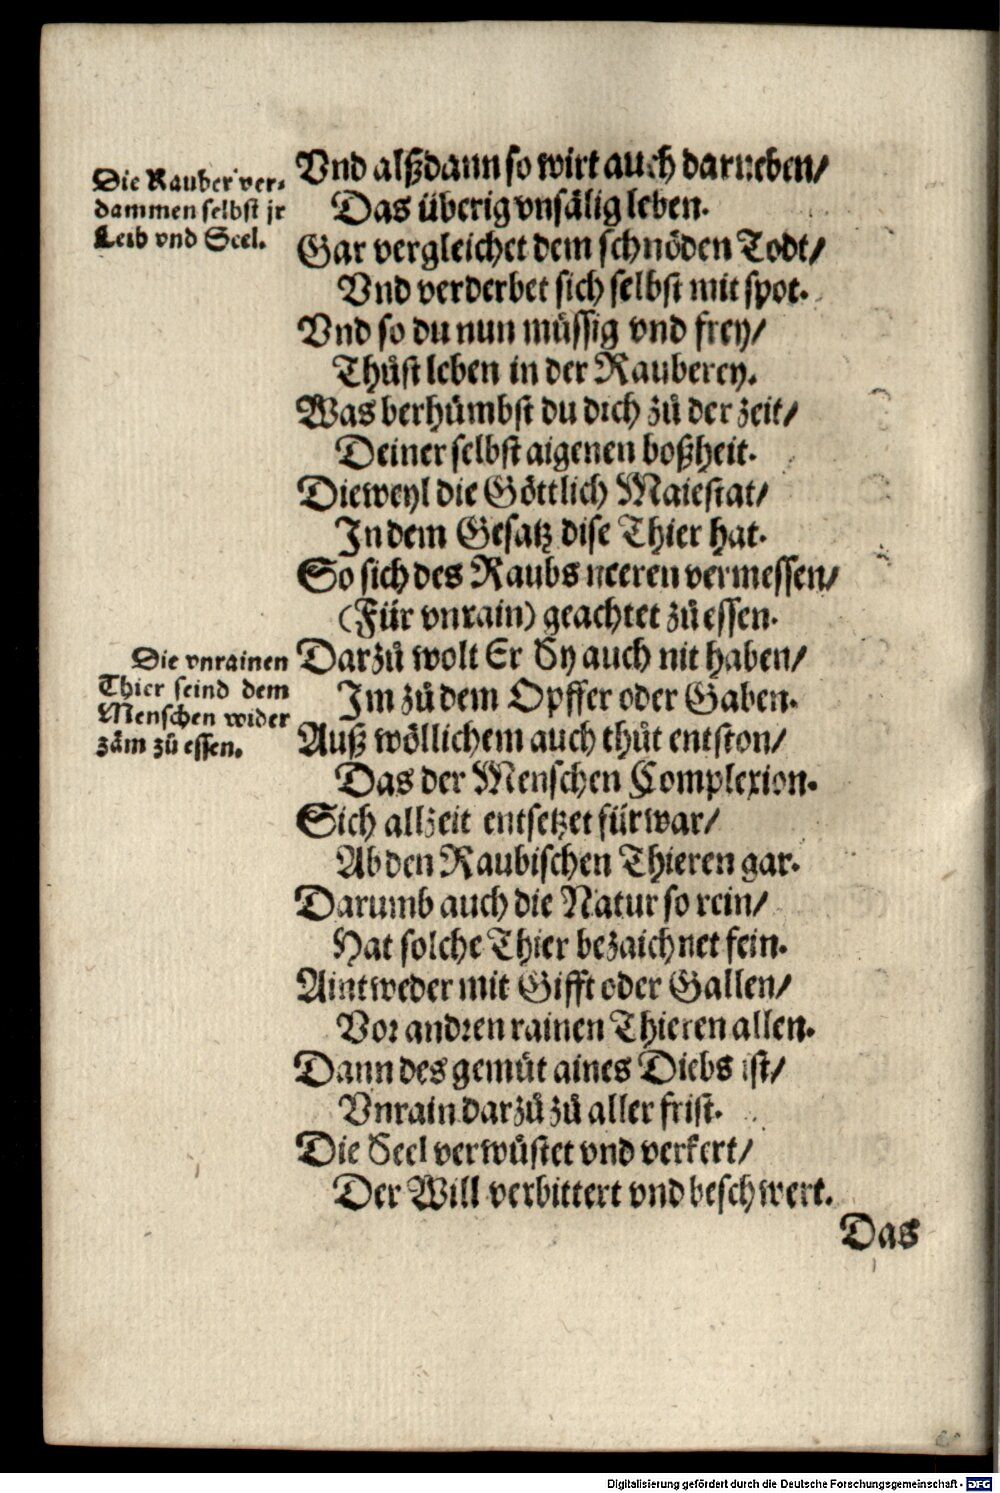 Die Rauber ver⸗
dammen selbst jr
Leib vnd Seel.
Vnd alßdann so wirt auch darneben/
Das überig vnsälig leben.
Gar vergleichet dem schnöden Todt/
Vnd verderbet sich selbst mit spot.
Vnd so du nun müssig vnd frey/
Thůst leben in der Rauberey.
Was berhůmbst du dich zů der zeit/
Deiner selbst aigenen boßheit.
Dieweyl die Göttlich Maiestat/
In dem Gesatz dise Thier hat.
So sich des Raubs neeren vermessen/
(Für vnrain) geachtet zů essen.
Die vnrainen
Thier seind dem
Menschen wider
zäm zů essen.
Darzů wolt Er Sy auch nit haben/
Im zů dem Opffer oder Gaben.
Auß wöllichem auch thůt entston/
Das der Menschen Complexion.
Sich allzeit entsetzet fürwar/
Ab den Raubischen Thieren gar.
Darumb auch die Natur so rein/
Hat solche Thier bezaichnet fein.
Aintweder mit Gifft oder Gallen/
Vor andren rainen Thieren allen.
Dann des gemüt aines Diebs ist/
Vnrain darzů zů aller frist.
Die Seel verwůstet vnd verkert/
Der Will verbittert vnd beschwert.
Das
Digitalisierung gefördert durch die Deutsche Forschungsgemeinschaft - DFG